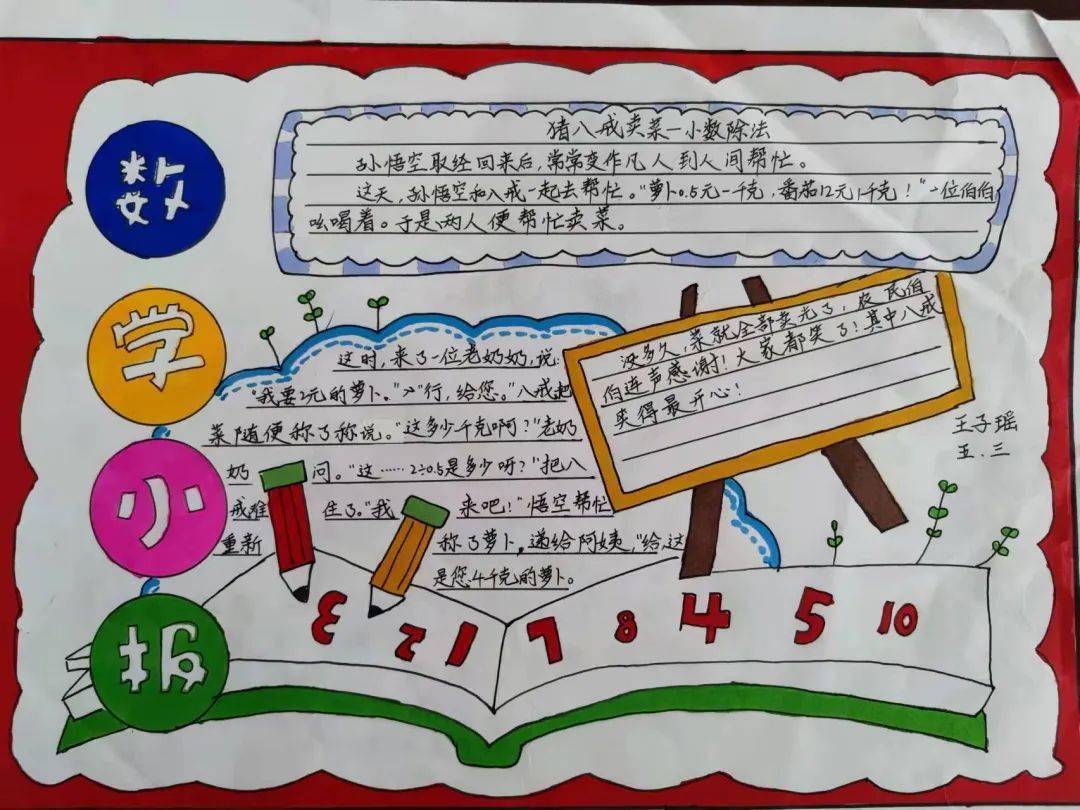 数
学
小
报
猪八戒卖菜一小数除法
孙悟空取经回来后，常常变作凡人到人间帮忙。
这天，孙悟空和八戒一起去帮忙。“萝卜0.5元一千克，番茄12元1千克！”一位伯伯
吆喝着。于是两人便帮忙卖菜。
这时，来了一位老奶奶，说：
“我要2元的萝卜。”“行，给您。”八戒把
菜随便称了称说。“这多少千克啊？”老奶
奶问。“这……2÷0.5是多少呀？”把八
戒难住了。“我来吧！”悟空帮忙
重新称了萝卜，递给阿姨，“给，这
是您4千克的萝卜。
没多久，菜就全部卖光了，农民伯
伯连声感谢！大家都笑了！其中八戒
笑得最开心！
王子瑶
五.三
3 2 1 7 8 4 5 10